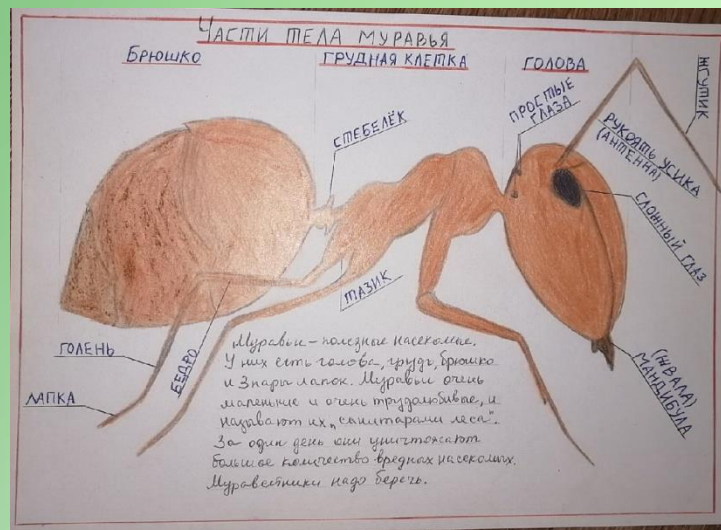 ЧАСТИ ТЕЛА МУРАВЬЯ
БРЮШКО
ГРУДНАЯ КЛЕТКА
ГОЛОВА
ЖГУТИК
ПРОСТЫЕ
ГЛАЗА
СТЕБЕЛЁК
РУКОЯТЬ УСИКА
(АНТЕННА)
СЛОЖНЫЙ ГЛАЗ
ТАЗИК
ГОЛЕНЬ
БЕДРО
ЛАПКА
(ЖВАЛА)
МАНДИБУЛА
Муравьи – полезные насекомые.
У них есть голова, грудь, брюшко
и 3 пары лапок. Муравьи очень
маленькие и очень трудолюбивые, и
называют их „санитарами леса".
За один день они уничтожают
большое количество вредных насекомых.
Муравейники надо беречь.